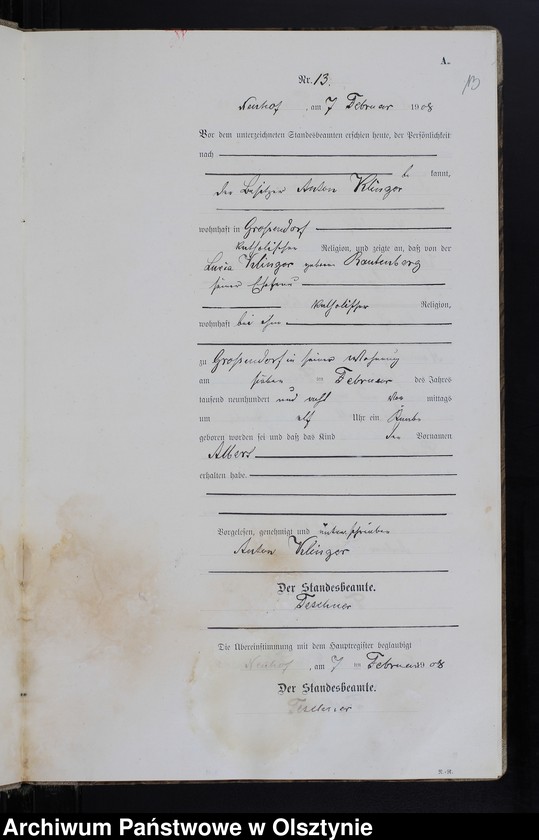 A.
13
Nr. 13.
Neuhof, am 7 Februar 1908
Vor dem unterzeichneten Standesbeamten erschien heute, der Persönlichkeit
nach
be kannt,
der Besitzer Anton Klinger
wohnhaft in Großendorf
katholischer Religion, und zeigte an, daß von der
Lucia Klinger geborene Rautenberg
seiner Ehefrau
katholischer Religion,
wohnhaft bei ihm
zu Großendorf in seiner Wohnung
am sieben ten Februar des Jahres
tausend neunhundert und acht Vor mittags
um elf Uhr ein Knabe
geboren worden sei und daß das Kind den Vornamen
Albert
erhalten habe.
Vorgelesen, genehmigt und unterschrieben
Anton Klinger
Der Standesbeamte.
Teschner
Die Übereinstimmung mit dem Hauptregister beglaubigt
Neuhof, am 7 ten Februar 1908
Der Standesbeamte.
Teschner
Archiwum Państwowe w Olsztynie